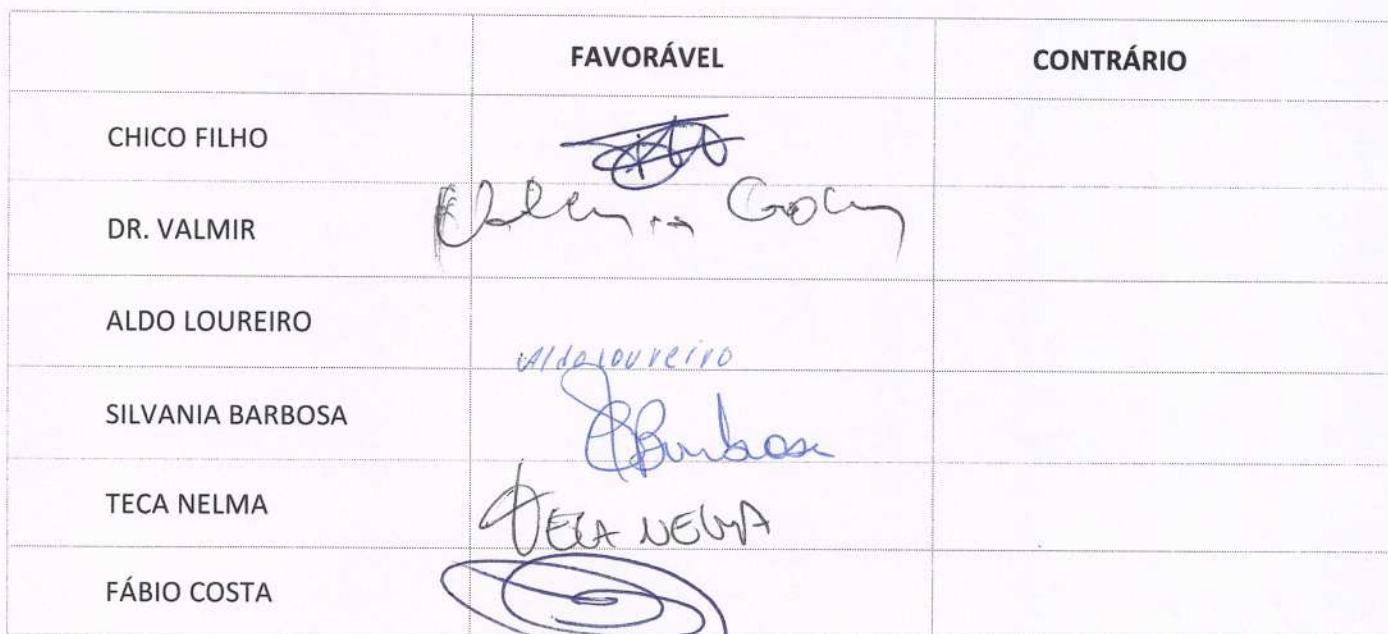 FAVORÁVEL CONTRÁRIO
CHICO FILHO
DR. VALMIR
ALDO LOUREIRO Aldo Loureiro
SILVANIA BARBOSA SBarbosa
TECA NELMA TECA NELMA
FÁBIO COSTA